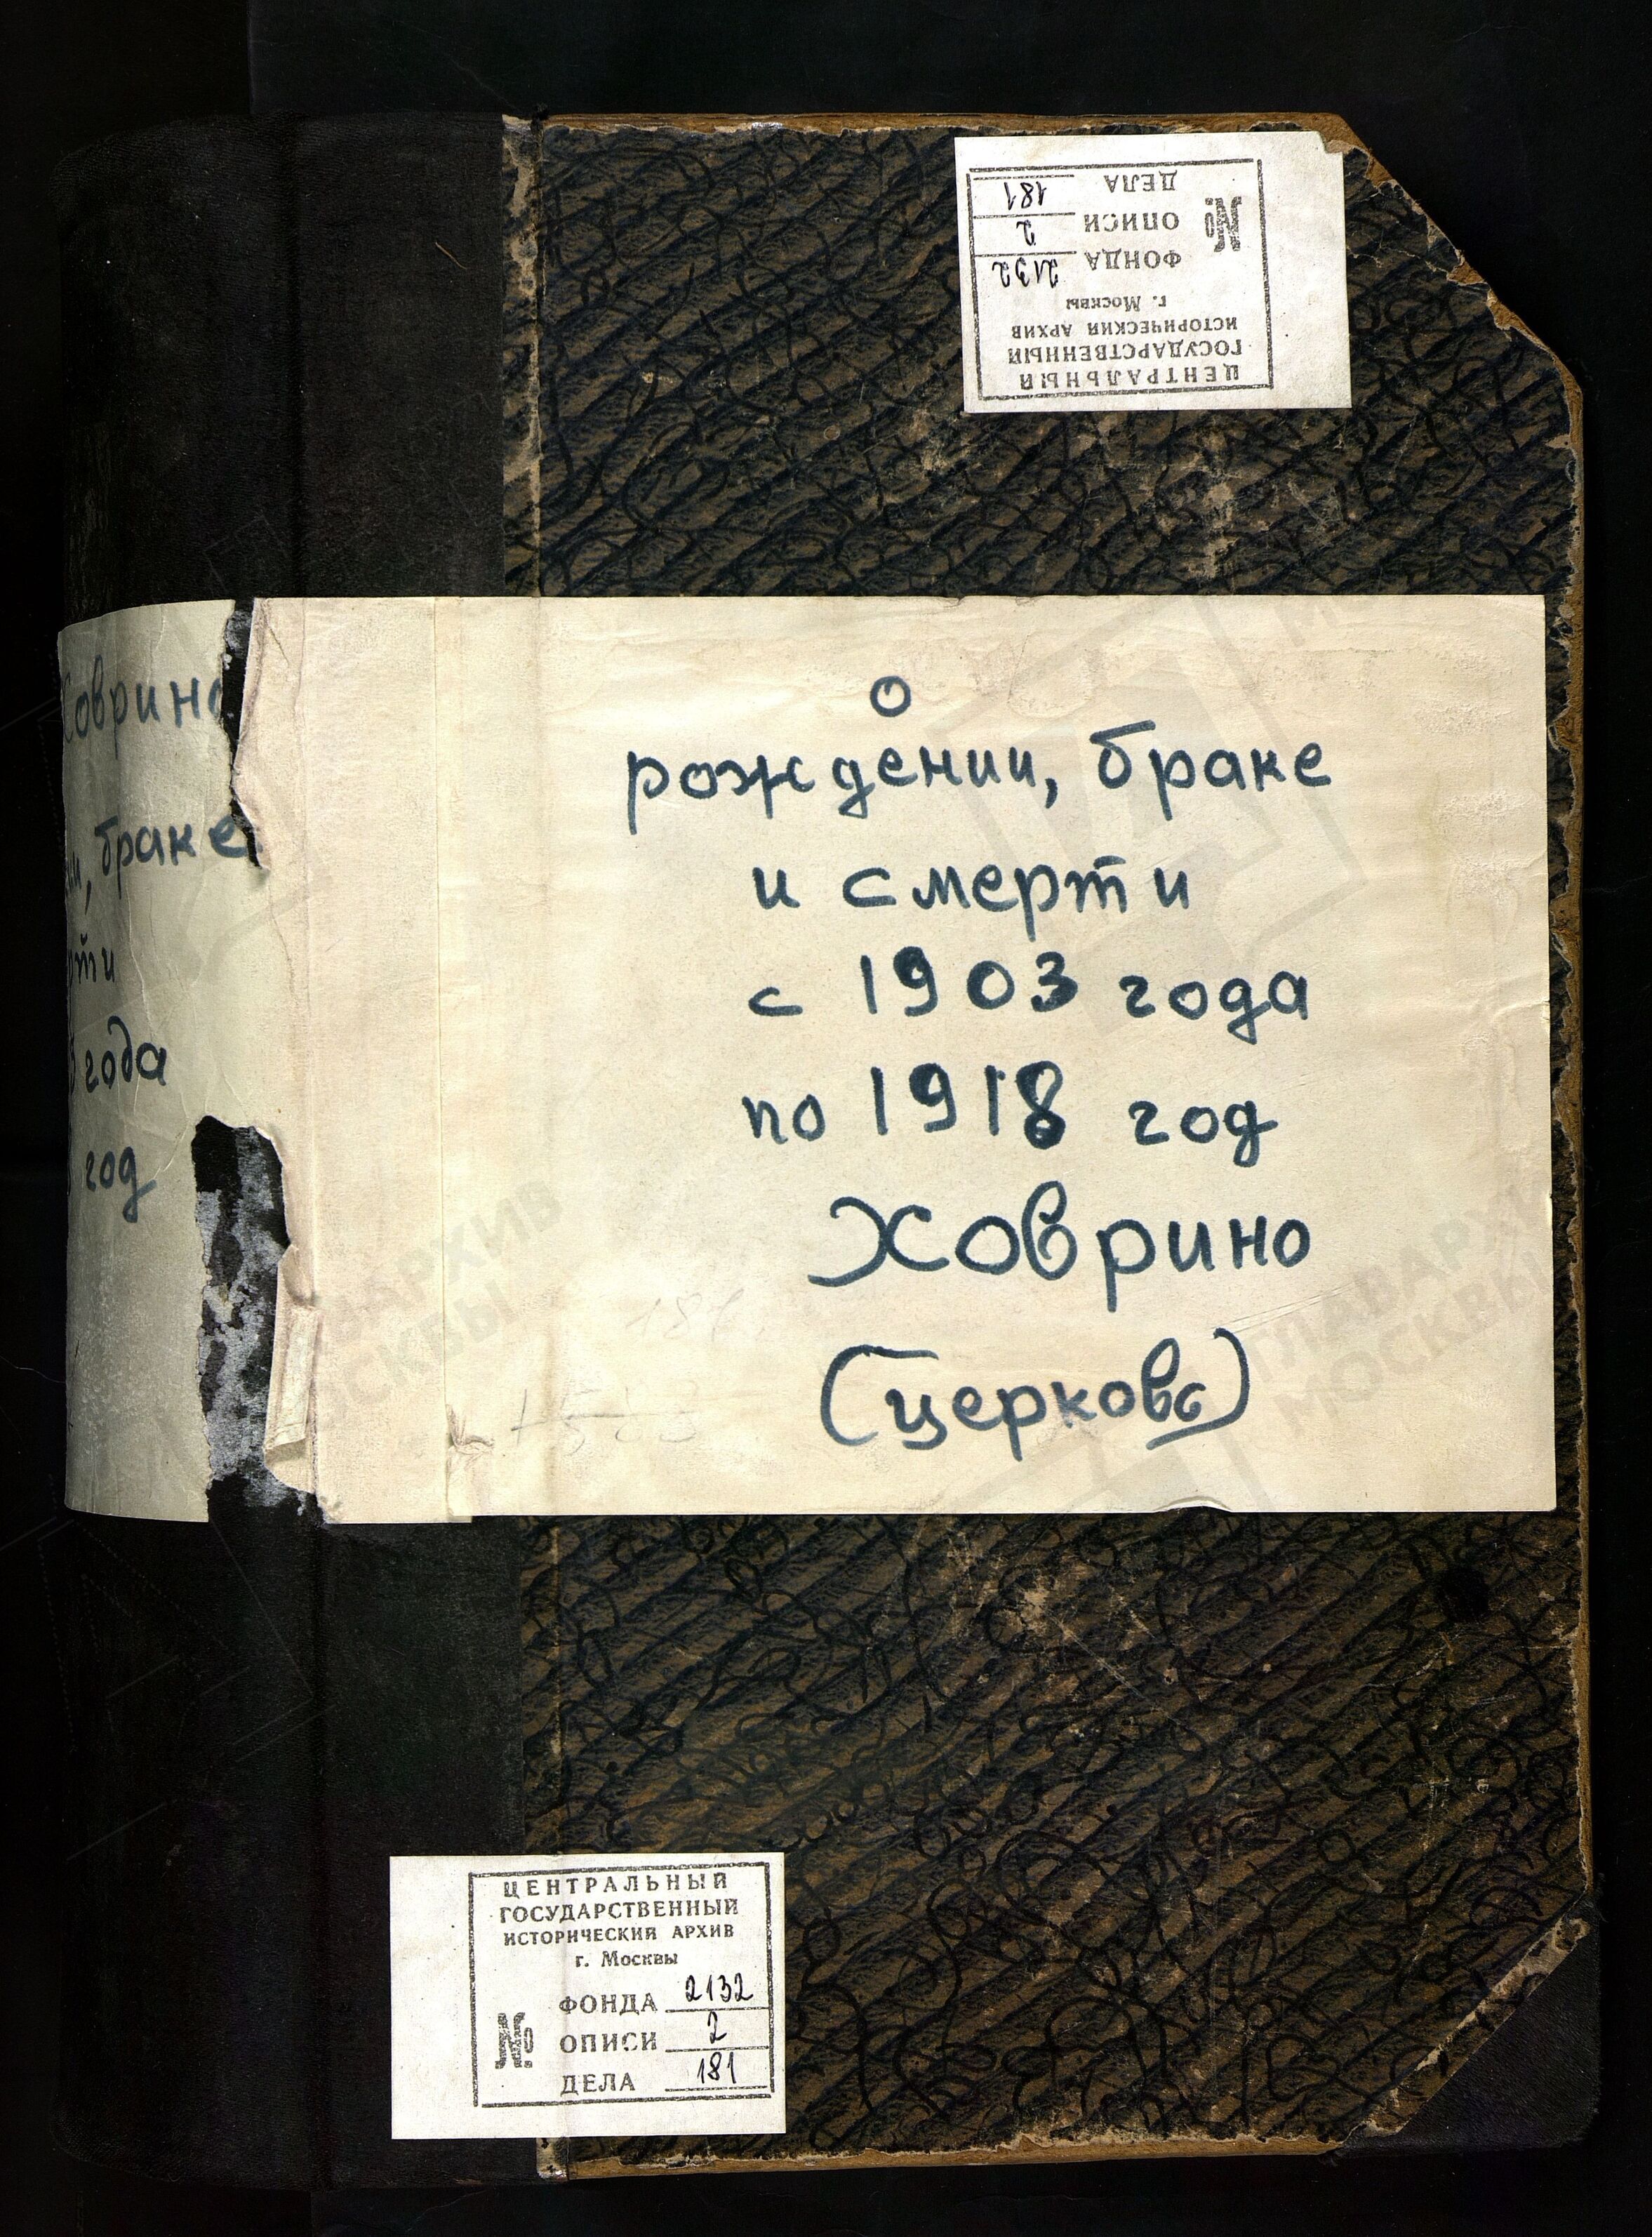 ЦЕНТРАЛЬНЫЙ
ГОСУДАРСТВЕННЫЙ
ИСТОРИЧЕСКИЙ АРХИВ
г. Москвы
№
ФОНДА 2132
ОПИСИ 2
ДЕЛА 181
о
рождении, браке
и смерти
с 1903 года
по 1918 год
Ховрино
(церковь)
оврино
, браке
рти
года
год
ЦЕНТРАЛЬНЫЙ
ГОСУДАРСТВЕННЫЙ
ИСТОРИЧЕСКИЙ АРХИВ
г. Москвы
№
ФОНДА 2132
ОПИСИ 2
ДЕЛА 181
ГЛАВАРХИВ
МОСКВЫ